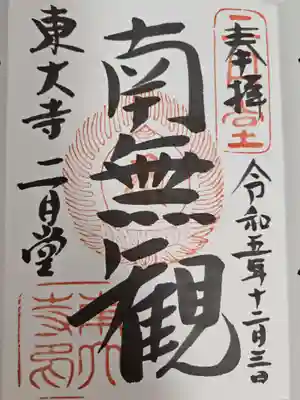 奉拝
令和五年十二月三日
南無観
東大寺 二月堂